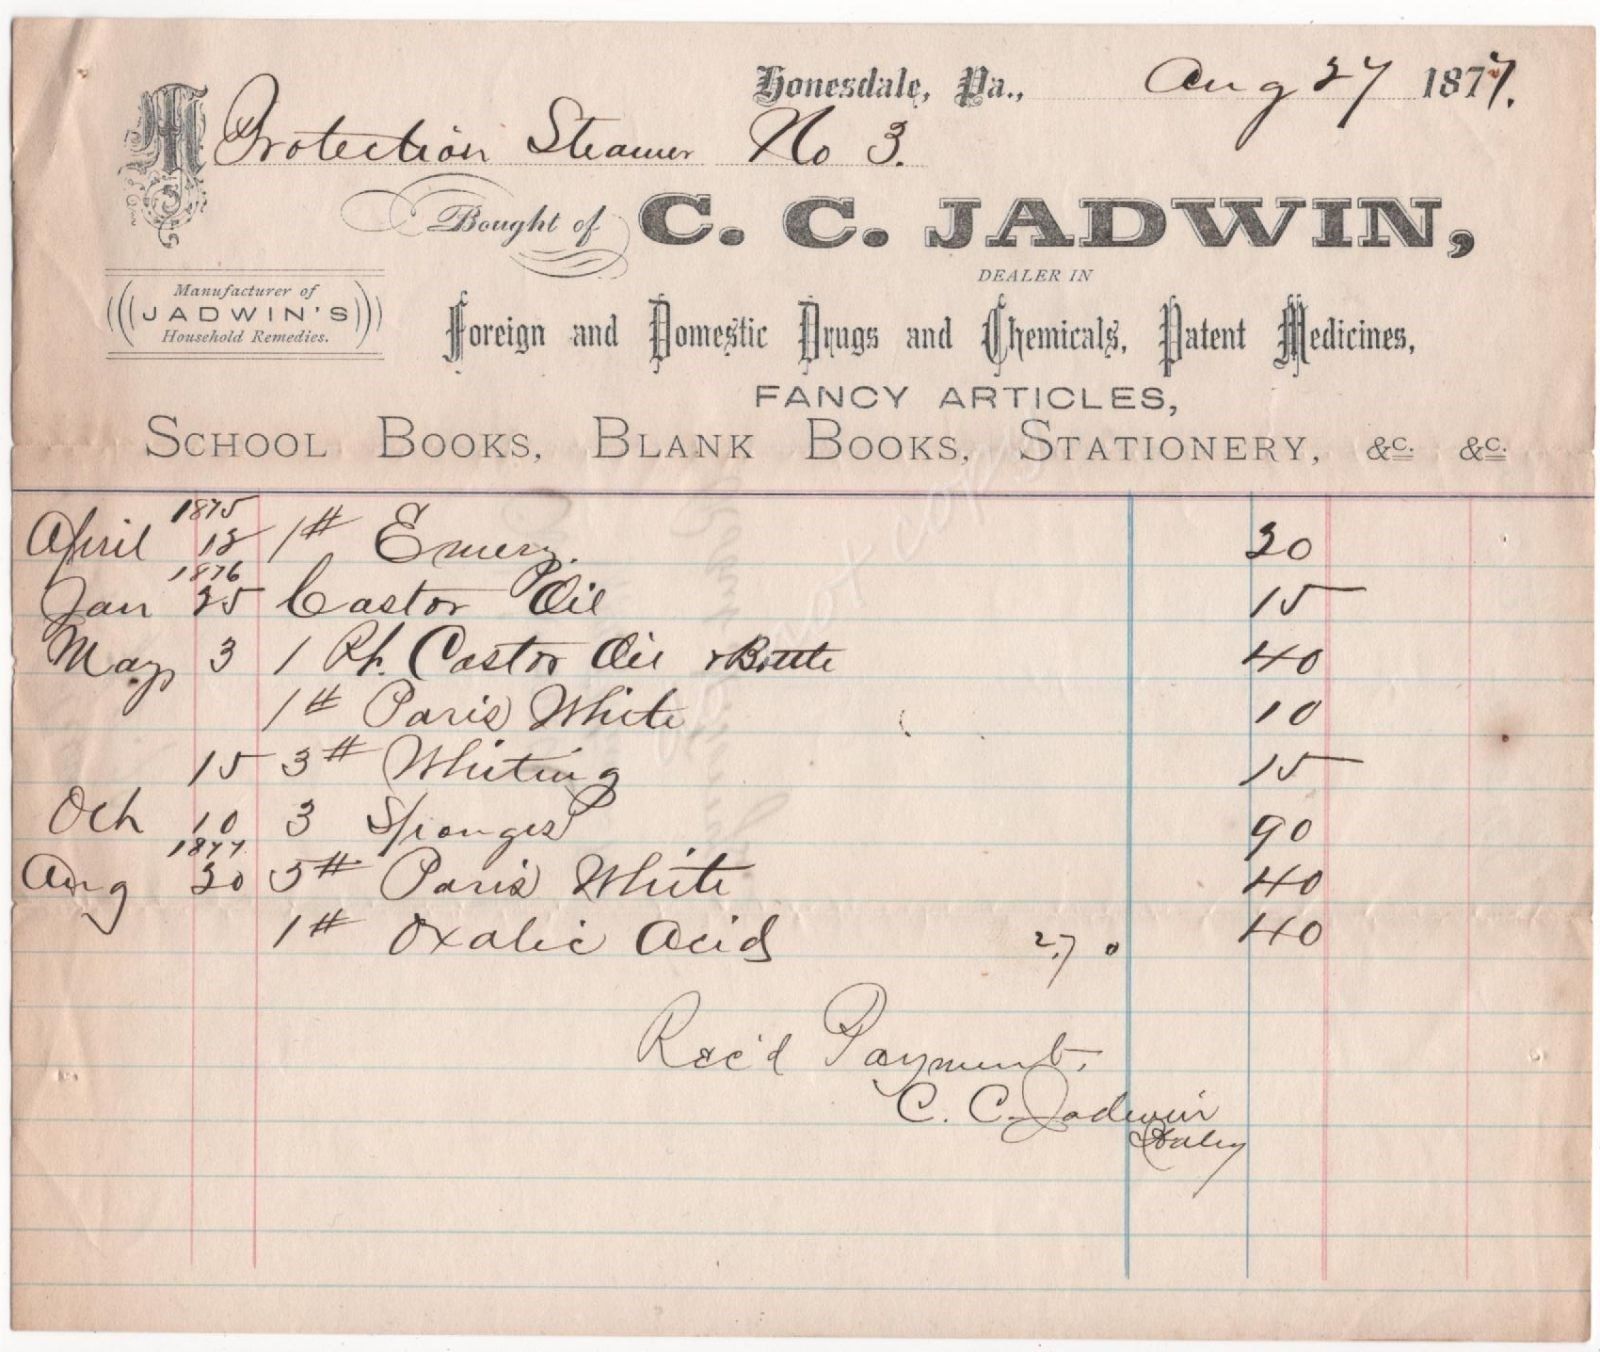 Honesdale, Pa., Aug 27 1877.
M Protection Steamer No 3.
Bought of C. C. JADWIN,
DEALER IN
Manufacturer of
JADWIN'S
Household Remedies.
Foreign and Domestic Drugs and Chemicals, Patent Medicines,
FANCY ARTICLES,
SCHOOL BOOKS, BLANK BOOKS, STATIONERY, &c. &c.
1875
April 12 1# Emery. 20
1876
Jan 25 Castor Oil 15
May 3 1 Pt. Castor Oil & Bottle 40
1# Paris White 10
15 3# Whiting 15
Oct 10 3 Sponges 90
1877
Aug 20 5# Paris White 40
1# Oxalic Acid 2.70 40
Rec'd Payment,
C. C. Jadwin